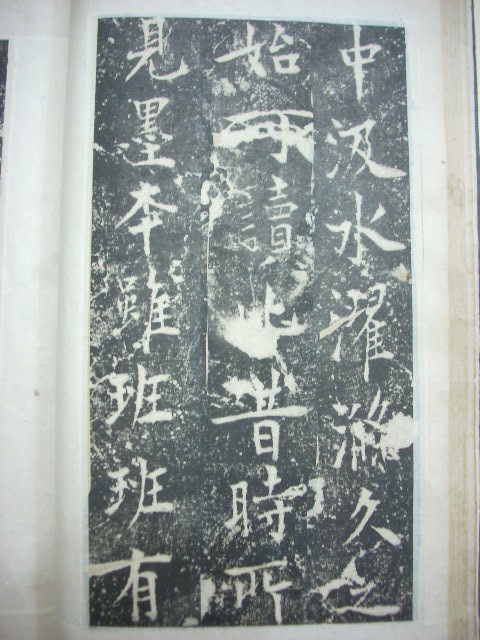 中汲水濯滌久之
始可讀比昔時所
見墨本雖班班有